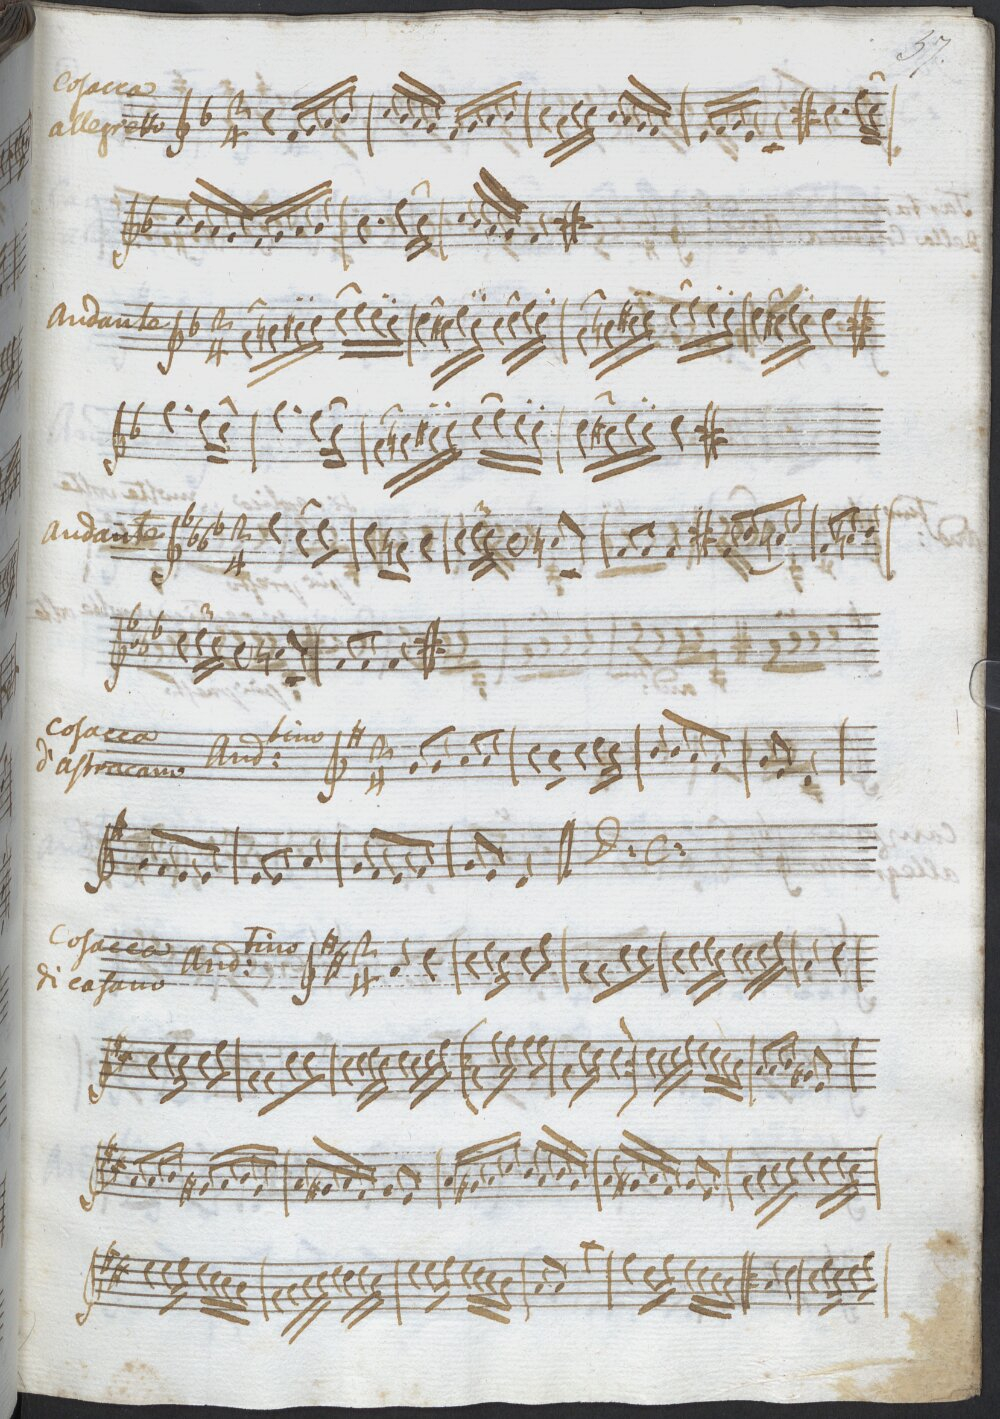 57.
Cosacca
allegretto
Andante
Andante
3
3
Cosacca
d'astracano And:tino
D: C:
Cosacca
di casano And:tino